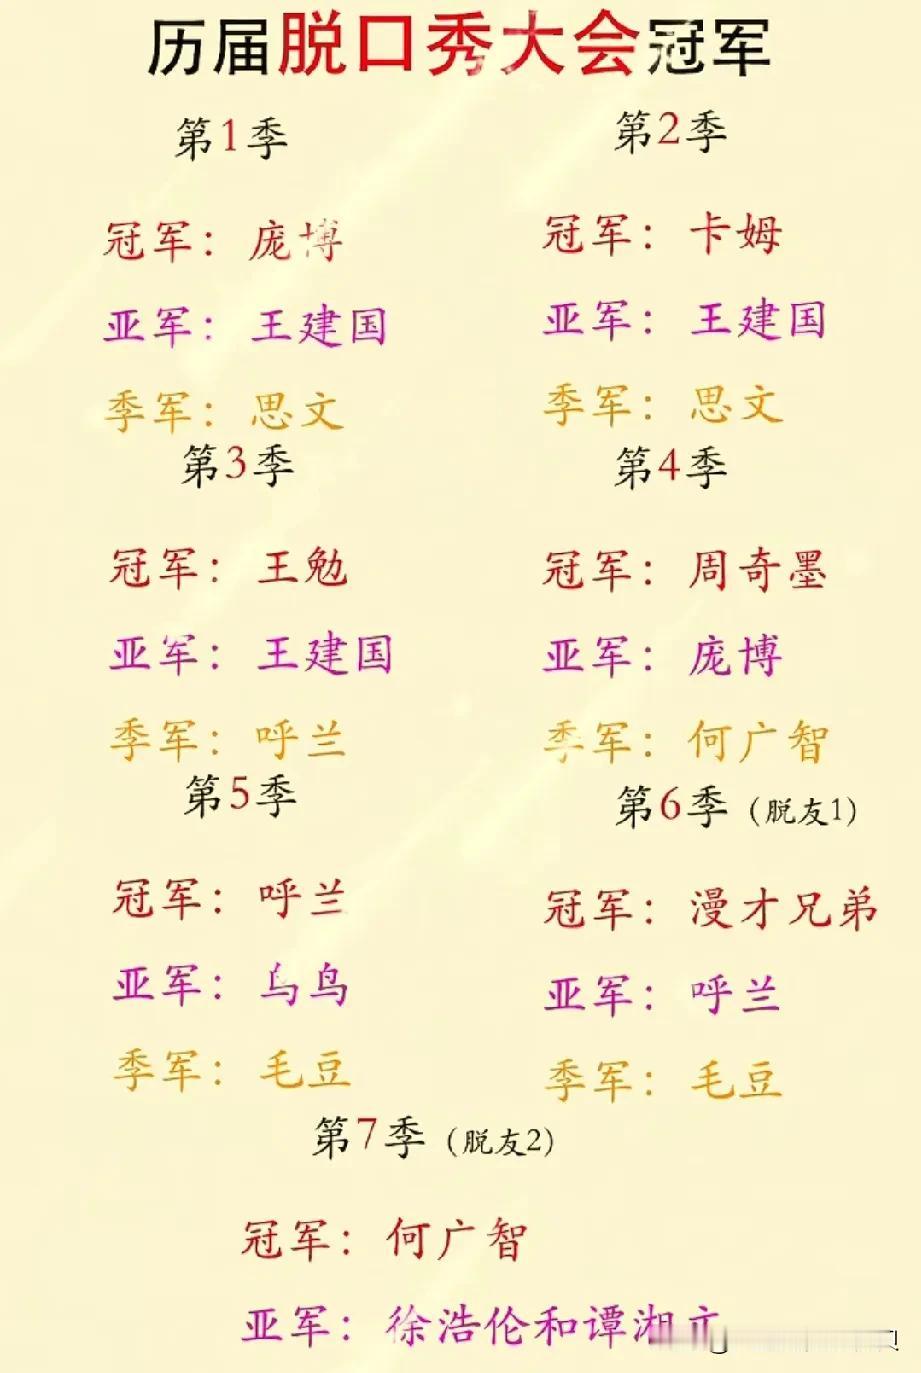 历届脱口秀大会冠军
第1季
冠军：庞博
亚军：王建国
季军：思文
第2季
冠军：卡姆
亚军：王建国
季军：思文
第3季
冠军：王勉
亚军：王建国
季军：呼兰
第4季
冠军：周奇墨
亚军：庞博
季军：何广智
第5季
冠军：呼兰
亚军：鸟鸟
季军：毛豆
第6季（脱友1）
冠军：漫才兄弟
亚军：呼兰
季军：毛豆
第7季（脱友2）
冠军：何广智
亚军：徐浩伦和谭湘